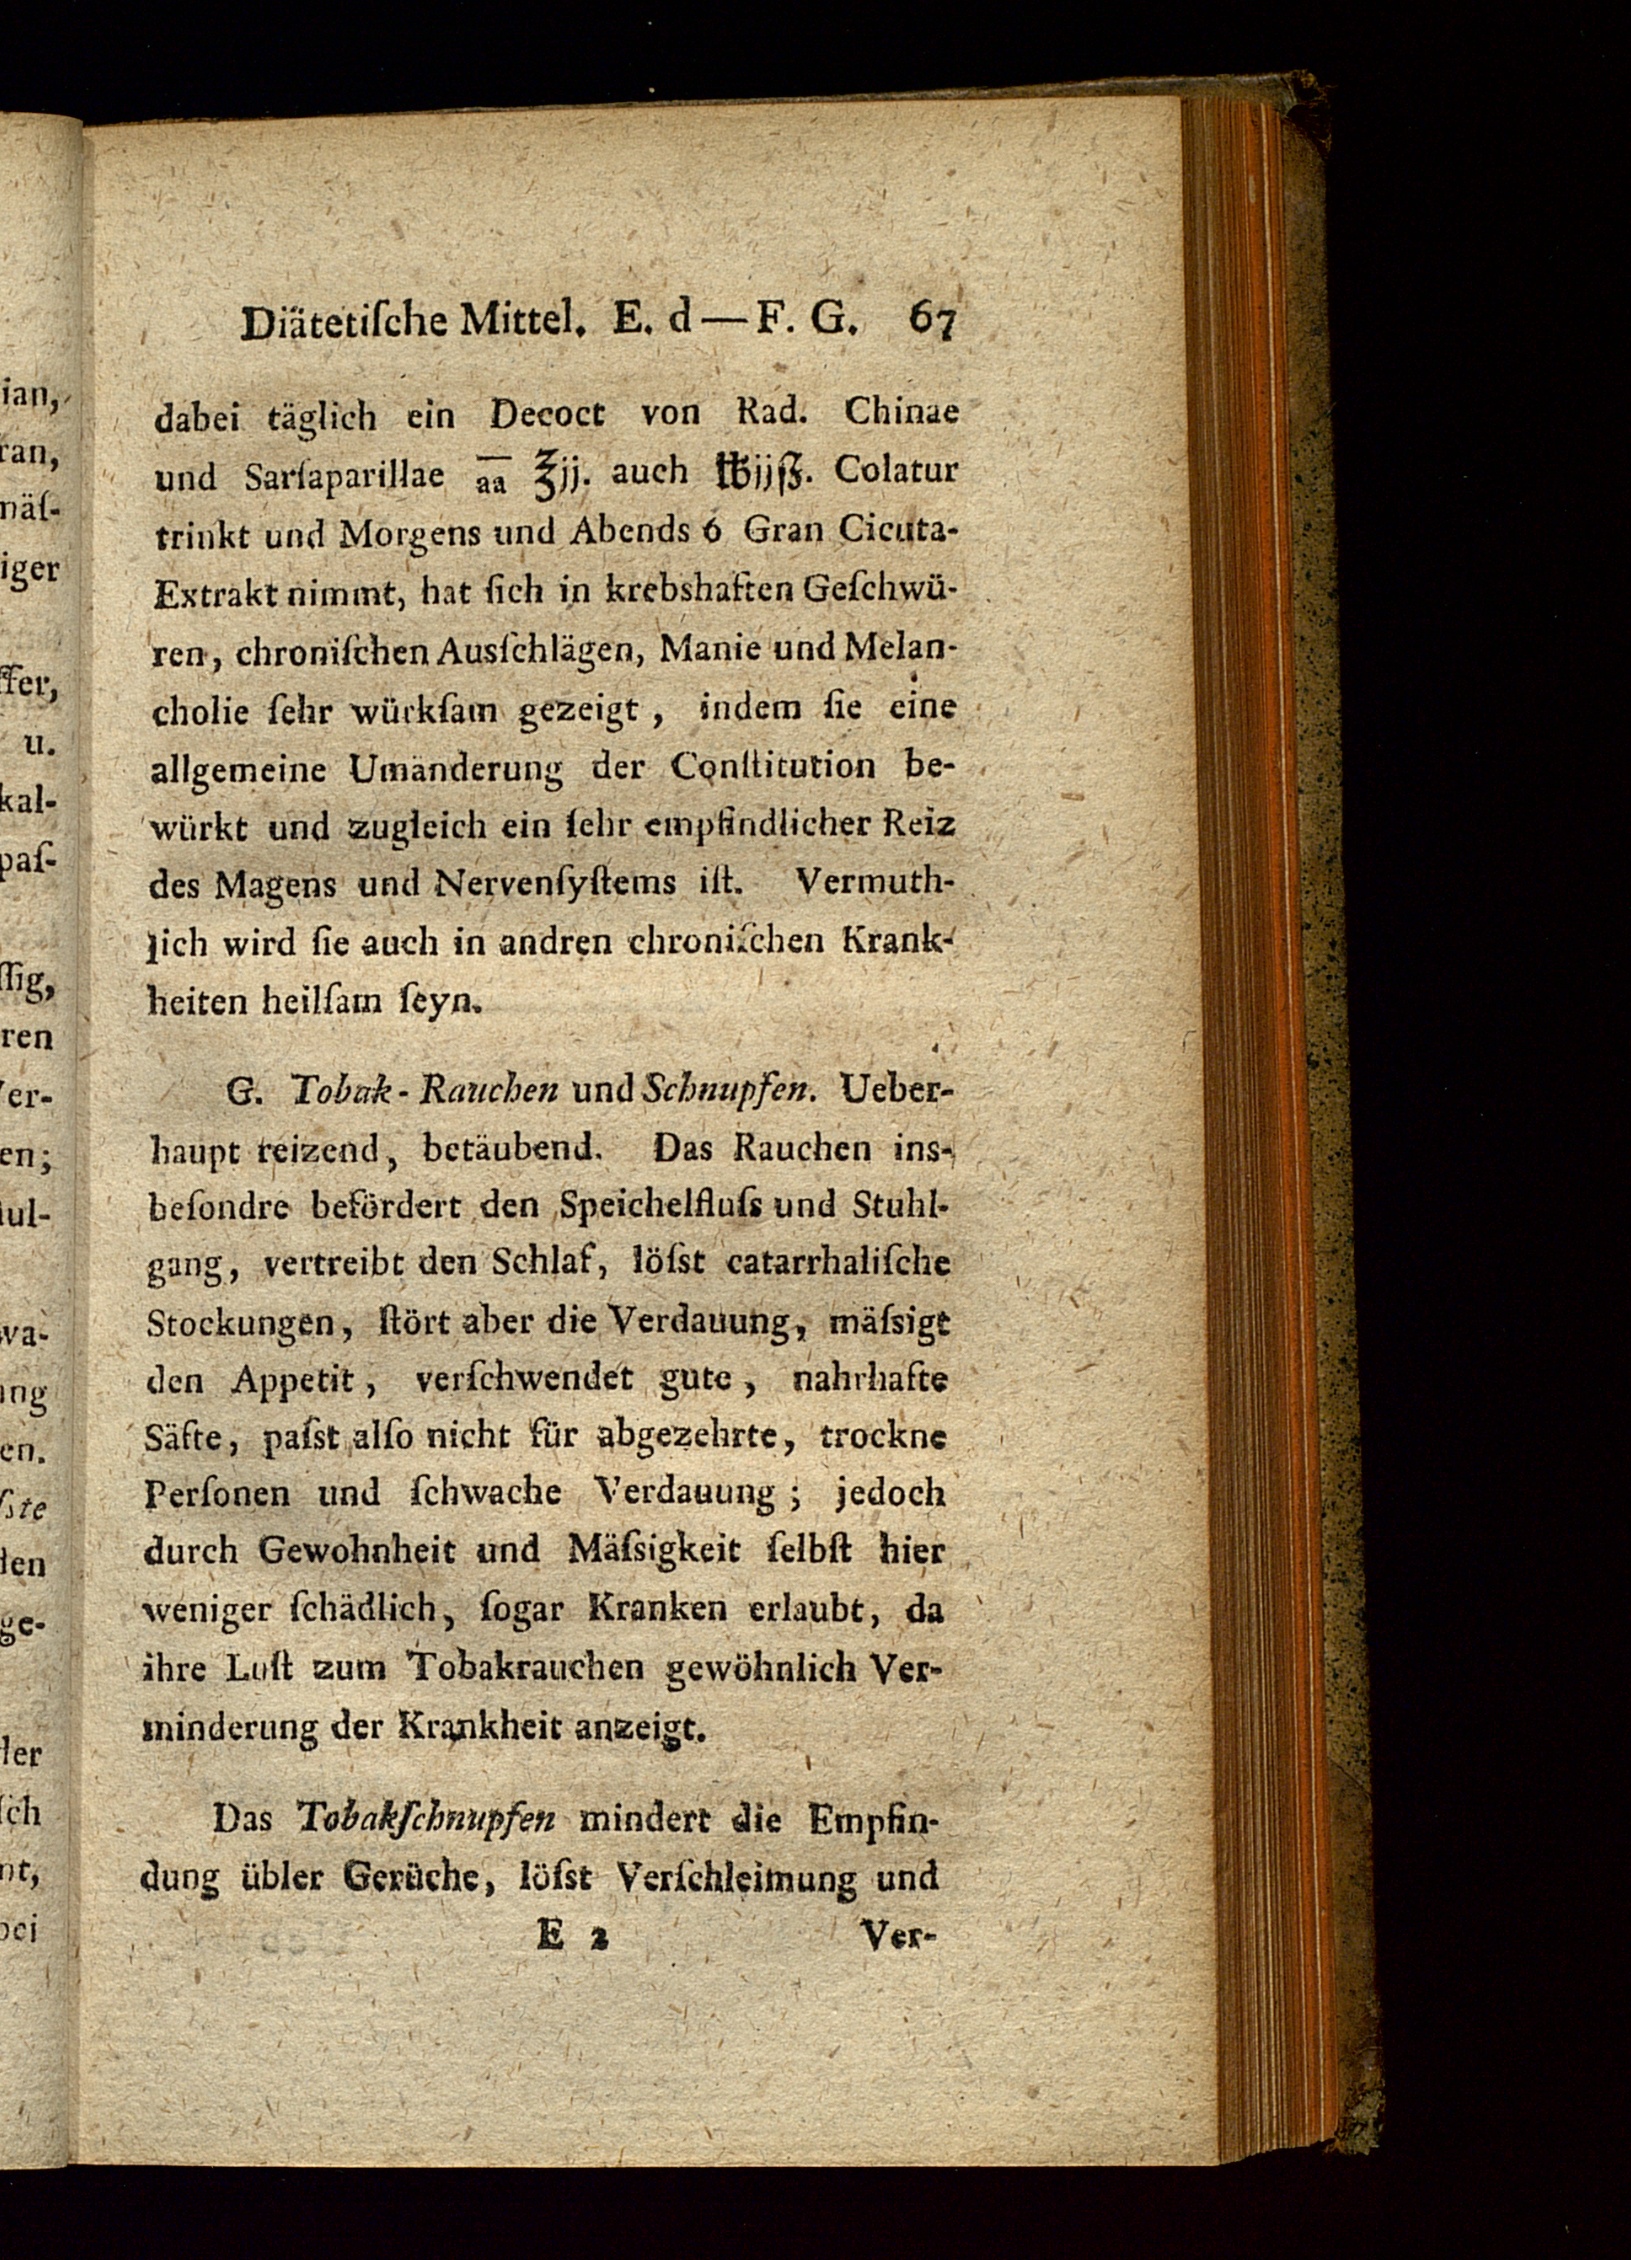 Diätetiſche Mittel. E. d — F. G. 67
dabei täglich ein Decoct von Rad. Chinae
und Sarſaparillae a̅a̅ ℥jj. auch ℔jjſʒ. Colatur
trinkt und Morgens und Abends 6 Gran Cicuta-
Extrakt nimmt, hat ſich in krebshaften Geſchwü-
ren, chroniſchen Ausſchlägen, Manie und Melan-
cholie ſehr würkſam gezeigt, indem ſie eine
allgemeine Umänderung der Conſtitution be-
würkt und zugleich ein ſehr empfindlicher Reiz
des Magens und Nervenſyſtems iſt. Vermuth-
lich wird ſie auch in andren chroniſchen Krank-
heiten heilſam ſeyn.
G. Tobak-Rauchen und Schnupfen. Ueber-
haupt reizend, betäubend. Das Rauchen ins-
beſondre befördert den Speichelfluſs und Stuhl-
gang, vertreibt den Schlaf, löſst catarrhaliſche
Stockungen, ſtört aber die Verdauung, mäſsigt
den Appetit, verſchwendet gute, nahrhafte
Säfte, paſst alſo nicht für abgezehrte, trockne
Perſonen und ſchwache Verdauung; jedoch
durch Gewohnheit und Mäſsigkeit ſelbſt hier
weniger ſchädlich, ſogar Kranken erlaubt, da
ihre Luſt zum Tobakrauchen gewöhnlich Ver-
minderung der Krankheit anzeigt.
Das Tobakſchnupfen mindert die Empfin-
dung übler Gerüche, löſst Verſchleimung und
E 2 Ver-